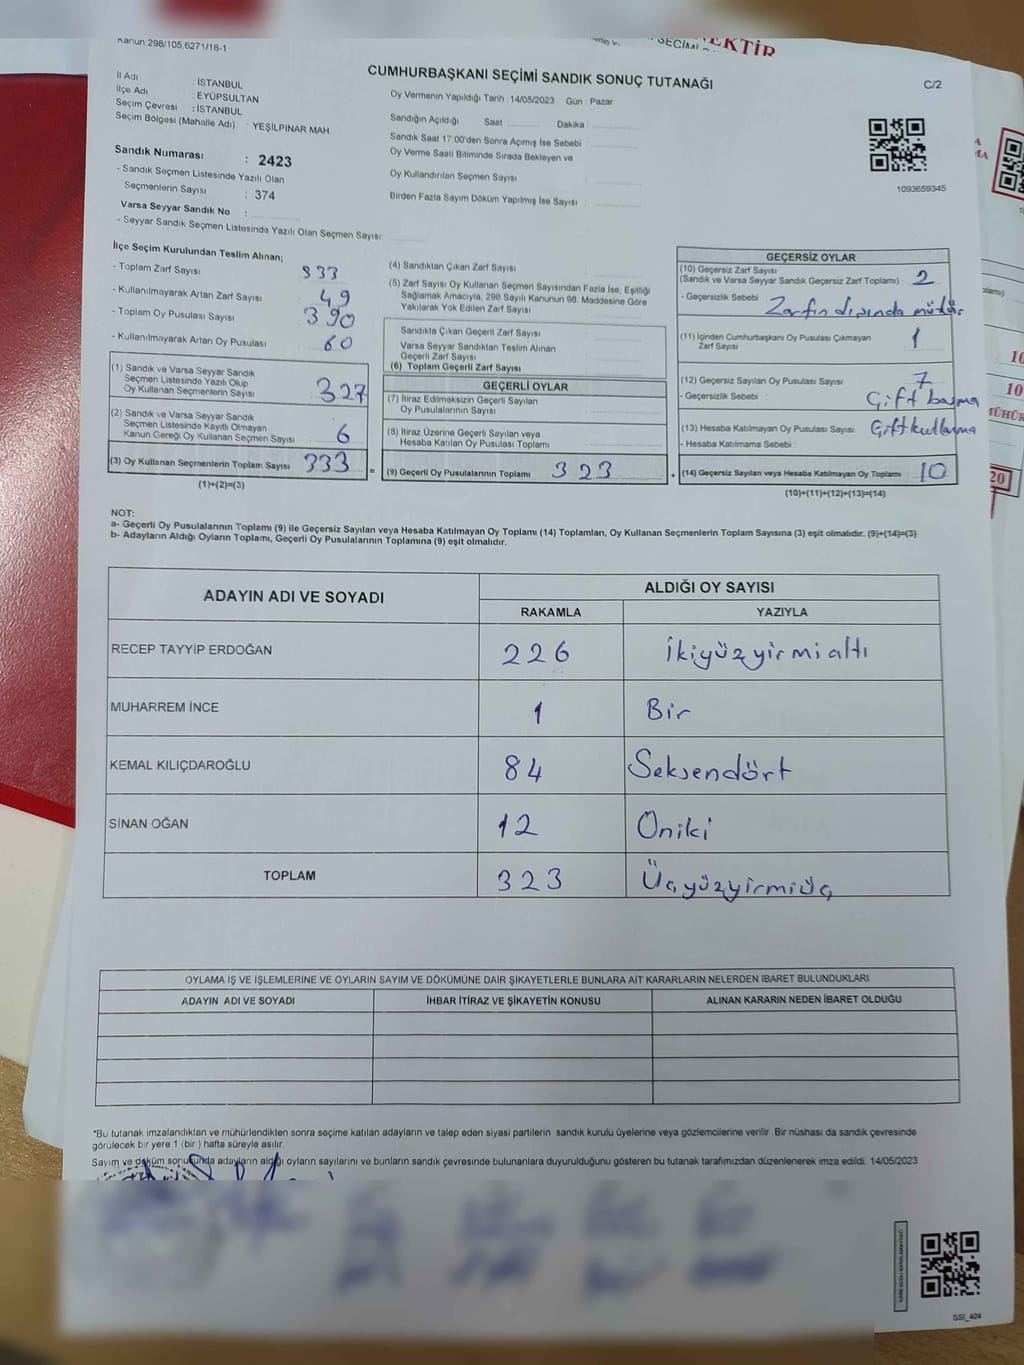 Kanun:298/105,6271/18-1
CUMHURBAŞKANI SEÇİMİ SANDIK SONUÇ TUTANAĞI
C/2
İl Adı : İSTANBUL
İlçe Adı : EYÜPSULTAN
Seçim Çevresi : İSTANBUL
Seçim Bölgesi (Mahalle Adı) : YEŞİLPINAR MAH.
Sandık Numarası : 2423
- Sandık Seçmen Listesinde Yazılı Olan
Seçmenlerin Sayısı : 374
Varsa Seyyar Sandık No :
- Seyyar Sandık Seçmen Listesinde Yazılı Olan Seçmen Sayısı:
Oy Vermenin Yapıldığı Tarih : 14/05/2023 Gün : Pazar
Sandığın Açıldığı Saat Dakika :
Sandık Saat 17:00'den Sonra Açımış İse Sebebi :
Oy Verme Saati Bitiminde Sırada Bekleyen ve
Oy Kullandırılan Seçmen Sayısı :
Birden Fazla Sayım Döküm Yapılmış İse Sayısı :
1093659345
İlçe Seçim Kurulundan Teslim Alınan;
- Toplam Zarf Sayısı 333
- Kullanılmayarak Artan Zarf Sayısı 49
- Toplam Oy Pusulası Sayısı 390
- Kullanılmayarak Artan Oy Pusulası 60
(1) Sandık ve Varsa Seyyar Sandık
Seçmen Listesinde Yazılı Olup
Oy Kullanan Seçmenlerin Sayısı 327
(2) Sandık ve Varsa Seyyar Sandık
Seçmen Listesinde Kayıtlı Olmayan
Kanun Gereği Oy Kullanan Seçmen Sayısı 6
(3) Oy Kullanan Seçmenlerin Toplam Sayısı 333
(1)+(2)=(3)
(4) Sandıktan Çıkan Zarf Sayısı
(5) Zarf Sayısı Oy Kullanan Seçmen Sayısından Fazla İse, Eşitliği
Sağlamak Amacıyla, 298 Sayılı Kanunun 98. Maddesine Göre
Yakılarak Yok Edilen Zarf Sayısı
Sandıkta Çıkan Geçerli Zarf Sayısı
Varsa Seyyar Sandıktan Teslim Alınan
Geçerli Zarf Sayısı
(6) Toplam Geçerli Zarf Sayısı
GEÇERLİ OYLAR
(7) İtiraz Edilmeksizin Geçerli Sayılan
Oy Pusulalarının Sayısı
(8) İtiraz Üzerine Geçerli Sayılan veya
Hesaba Katılan Oy Pusulası Toplamı
= (9) Geçerli Oy Pusulalarının Toplamı 323
GEÇERSİZ OYLAR
(10) Geçersiz Zarf Sayısı
(Sandık ve Varsa Seyyar Sandık Geçersiz Zarf Toplamı) : 2
- Geçersizlik Sebebi : Zarfın dışında mühür
(11) İçinden Cumhurbaşkanı Oy Pusulası Çıkmayan
Zarf Sayısı 1
(12) Geçersiz Sayılan Oy Pusulası Sayısı 7
- Geçersizlik Sebebi : Çift basma
(13) Hesaba Katılmayan Oy Pusulası Sayısı Çift kullanma
- Hesaba Katılmama Sebebi :
+ (14) Geçersiz Sayılan veya Hesaba Katılmayan Oy Toplamı 10
(10)+(11)+(12)+(13)=(14)
NOT:
a- Geçerli Oy Pusulalarının Toplamı (9) ile Geçersiz Sayılan veya Hesaba Katılmayan Oy Toplamı (14) Toplamları, Oy Kullanan Seçmenlerin Toplam Sayısına (3) eşit olmalıdır. (9)+(14)=(3)
b- Adayların Aldığı Oyların Toplamı, Geçerli Oy Pusulalarının Toplamına (9) eşit olmalıdır.
ADAYIN ADI VE SOYADI ALDIĞI OY SAYISI
RAKAMLA YAZIYLA
RECEP TAYYİP ERDOĞAN 226 İkiyüzyirmialtı
MUHARREM İNCE 1 Bir
KEMAL KILIÇDAROĞLU 84 Seksendört
SİNAN OĞAN 12 Oniki
TOPLAM 323 Üçyüzyirmiüç
OYLAMA İŞ VE İŞLEMLERİNE VE OYLARIN SAYIM VE DÖKÜMÜNE DAİR ŞİKAYETLERLE BUNLARA AİT KARARLARIN NELERDEN İBARET BULUNDUKLARI
ADAYIN ADI VE SOYADI İHBAR İTİRAZ VE ŞİKAYETİN KONUSU ALINAN KARARIN NEDEN İBARET OLDUĞU
*Bu tutanak imzalandıktan ve mühürlendikten sonra seçime katılan adayların ve talep eden siyasi partilerin sandık kurulu üyelerine veya gözlemcilerine verilir. Bir nüshası da sandık çevresinde
görülecek bir yere 1 (bir ) hafta süreyle asılır.
Sayım ve döküm sonucunda adayların aldığı oyların sayılarını ve bunların sandık çevresinde bulunanlara duyurulduğunu gösteren bu tutanak tarafımızdan düzenlenerek imza edildi. 14/05/2023
SSI_404